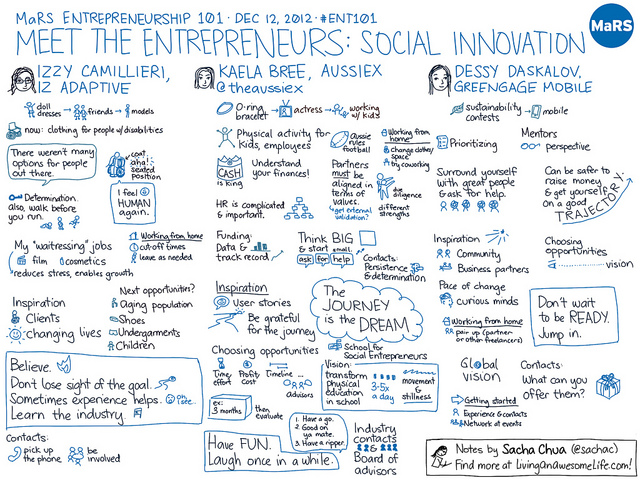 MaRS ENTREPRENEURSHIP 101 · DEC 12, 2012 · #ENT101
MaRS
MEET THE ENTREPRENEURS: SOCIAL INNOVATION
IZZY CAMILLIERI,
IZ ADAPTIVE
doll dresses → friends → models
now: clothing for people w/disabilities
There weren't many
options for people
out there.
coat
aha!
seated
position
Determination.
also, walk before
you run.
I feel
HUMAN
again.
My "waitressing" jobs
film cosmetics
reduces stress, enables growth
Working from home
cutoff times
leave as needed
Inspiration
Clients
Changing lives
Next opportunities?
Aging population
Shoes
Undergarments
Children
Believe.
Don't lose sight of the goal.
Sometimes experience helps.
Learn the industry.
Contacts:
pick up
the phone
be
involved
KAELA BREE, AUSSIEX
@theaussiex
O-ring
bracelet
actress
working
w/ kids
Physical activity for
kids, employees
Aussie
rules
football
Working from
home
change clothes/
space
try coworking
CASH
is king
Understand
your finances!
Partners
must be
aligned in
terms of
values.
get external
validation?
due
diligence
different
strengths
HR is complicated
& important.
Funding:
Data &
track record
Think BIG
& start small.
ask for help
Contacts:
Persistence
& determination
Inspiration
User stories
Be grateful
for the journey
The
JOURNEY
is the DREAM
Choosing opportunities
Time,
effort
Profit,
cost
Timeline ...
advisors
ex:
3 months
then evaluate
School for
Social Entrepreneurs
Vision:
transform
physical
education
in school
3-5x
a day
movement
&
stillness
Have FUN.
Laugh once in a while.
1. Have a go.
2. Good on
ya mate.
3. Have a ripper.
Industry
contacts
&
Board of
advisors
DESSY DASKALOV,
GREENGAGE MOBILE
sustainability
contests
mobile
Prioritizing
Mentors
perspective
Surround yourself
with great people
& ask for help.
Can be safer to
raise money
& get yourself
on a good
TRAJECTORY.
Inspiration
Community
Business partners
Choosing
opportunities
vision
Pace of change
curious minds
Working from home
pair up (partner
or other freelancers)
Don't wait
to be READY.
Jump in.
Global
vision
Contacts:
What can you
offer them?
Getting started
Experience & contacts
Network at events
Notes by Sacha Chua (@sachac)
Find more at LivingAnAwesomeLife.com!